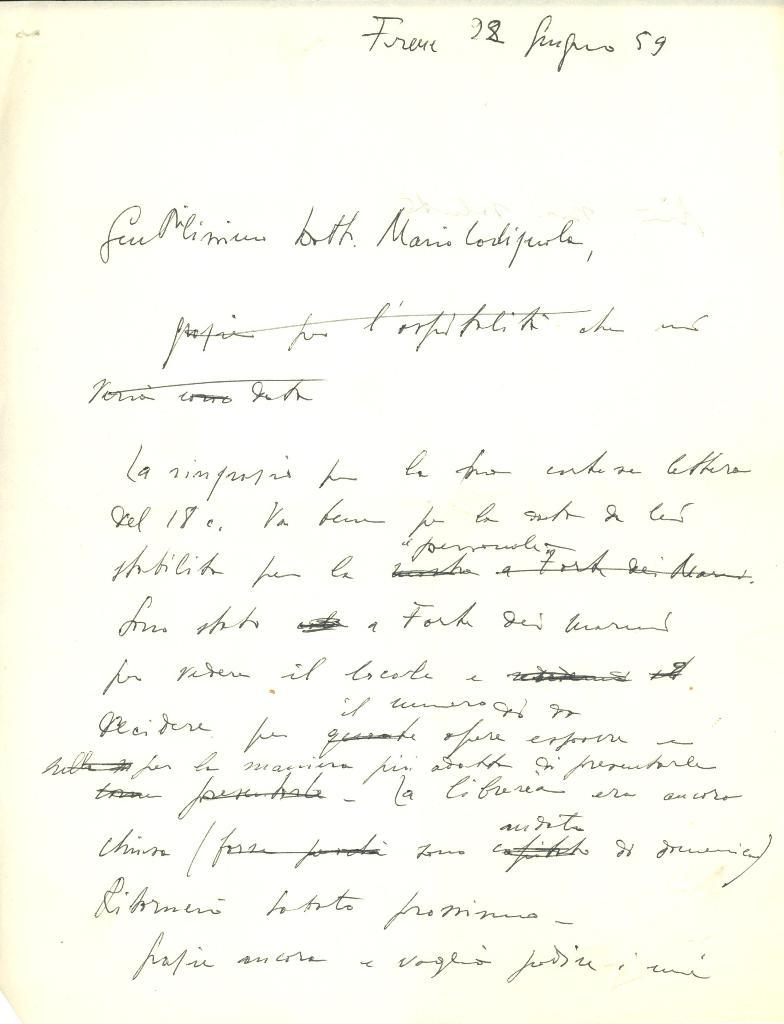 Firenze 22 Giugno 59
Gentilissimo Dott. Mario Codignola,
grazie per l'ospitalità che mi
verrà data
La ringrazio per la sua cortese lettera
del 18 c. Va bene per la data da lei
stabilita per la "personale"
mostra a Forte dei Marmi.
Sono stato a Forte dei Marmi
per vedere il locale e
decidere per il numero di
queste opere esporre e
per la maniera più adatta di presentarle
come presentarle - La libreria era ancora
chiusa (forse perché sono capitato andato di domenica)
Ritornerò sabato prossimo -
Grazie ancora e voglia gradire i miei